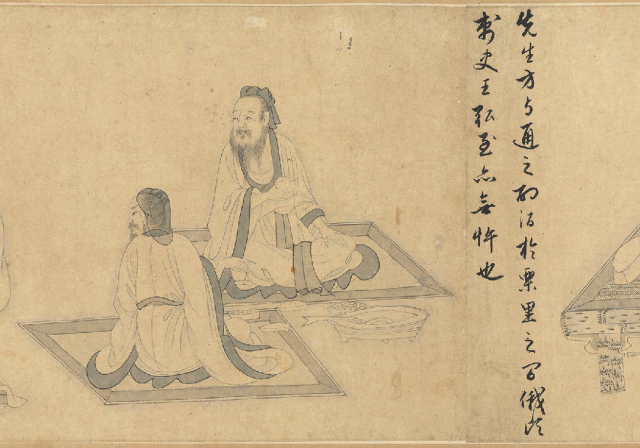 先生方与通之酌酒於栗里之間俄頃
刺史王弘至亦無忤也